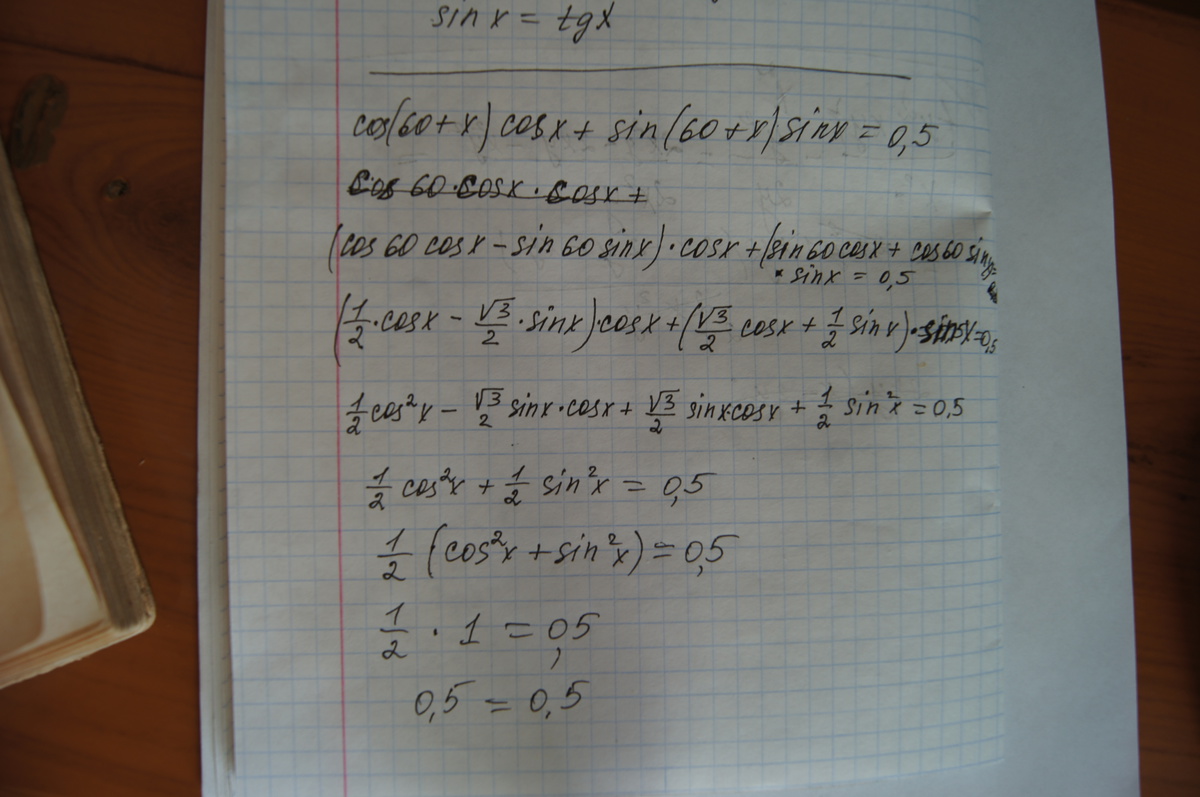 sin x = tg x
cos(60+x) cosx + sin(60+x) sinx = 0,5
cos 60·cosx · cosx +
(cos 60 cosx − sin 60 sinx) · cosx + (sin60 cosx + cos60 sinx)
· sinx = 0,5
(1/2 · cosx − √3/2 · sinx) · cosx + (√3/2 cosx + 1/2 sinx) · sinx = 0,5
1/2 cos²x − √3/2 sinx · cosx + √3/2 sinxcosx + 1/2 sin²x = 0,5
1/2 cos²x + 1/2 sin²x = 0,5
1/2 (cos²x + sin²x) = 0,5
1/2 · 1 = 0,5
0,5 = 0,5